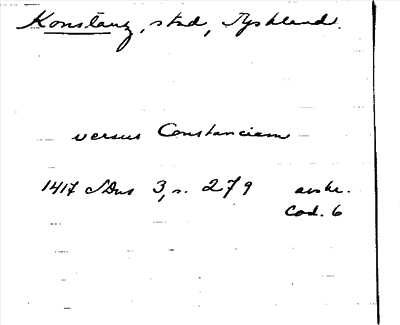 Konstanz, stad, Tyskland.
versus Constanciam
1417 SDns 3, s. 279 avskr.
Cod. 6